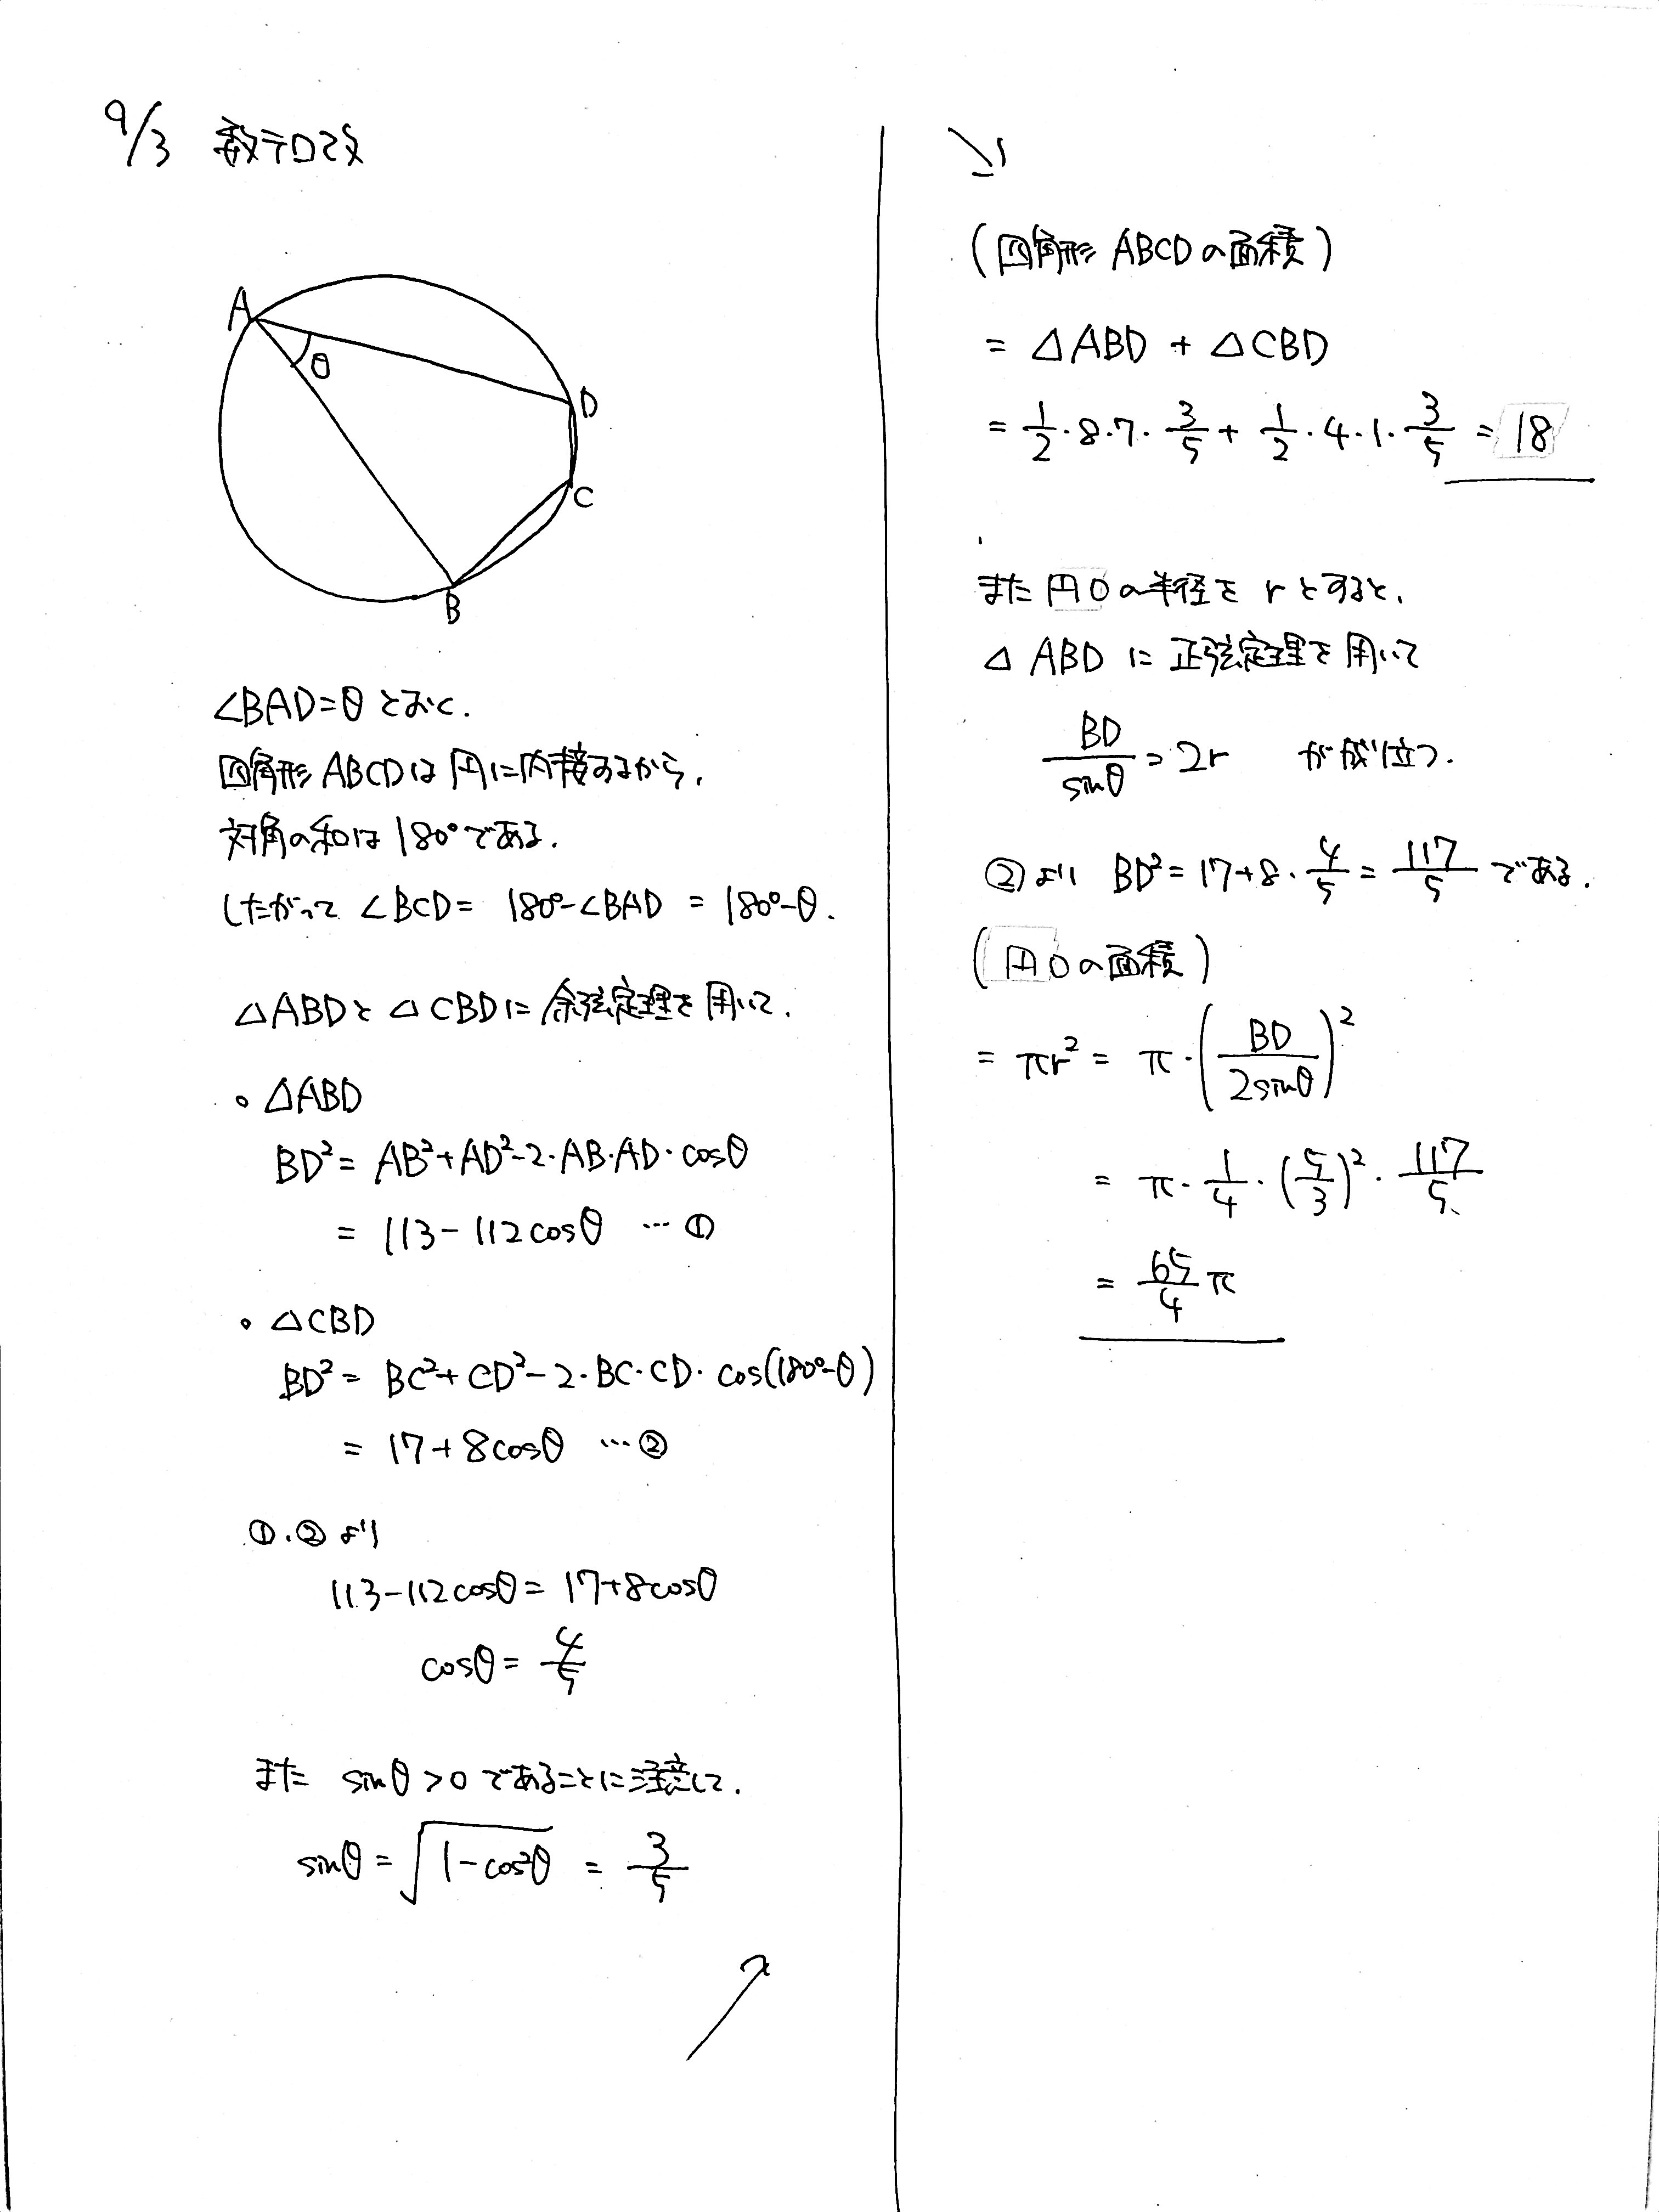 9/3 数テロ改
A
θ
D
C
B
∠BAD=θ とおく.
四角形 ABCDは円に内接するから,
対角の和は180°である.
したがって ∠BCD= 180°-∠BAD = 180°-θ.
△ABDと△CBDに余弦定理を用いて.
・△ABD
BD²= AB²+AD²-2・AB・AD・cosθ
= 113-112cosθ …①
・△CBD
BD²= BC²+CD²-2・BC・CD・cos(180°-θ)
= 17+8cosθ …②
①.②より
113-112cosθ= 17+8cosθ
cosθ= 4/5
また sinθ>0であることに注意して.
sinθ=√(1-cos²θ) = 3/5
(四角形 ABCDの面積)
= △ABD + △CBD
= 1/2・8・7・3/5 + 1/2・4・1・3/5 = 18
また円Oの半径をrとすると,
△ABDに正弦定理を用いて
BD/sinθ=2r が成り立つ.
②より BD²=17+8・4/5=117/5 である.
(円Oの面積)
= πr² = π・(BD/2sinθ)²
= π・1/4・(5/3)²・117/5
= 65/4 π